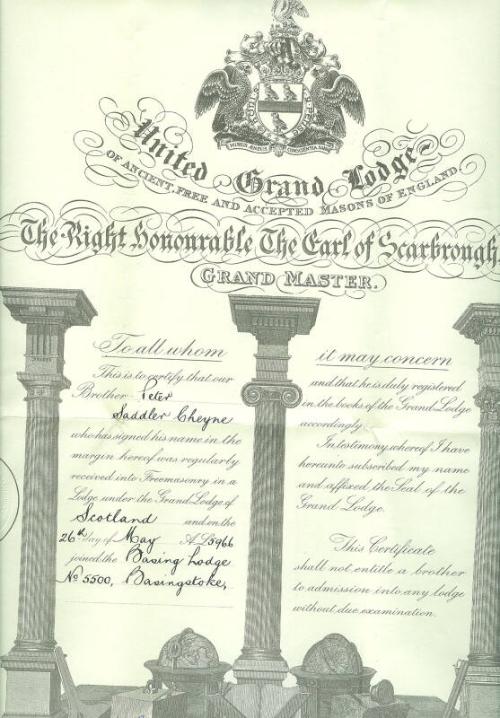 United Grand Lodge
OF ANCIENT, FREE AND ACCEPTED MASONS OF ENGLAND
The Right Honourable The Earl of Scarbrough.
GRAND MASTER.
To all whom
This is to certify that our
Brother Peter
Saddler Cheyne
who has signed his name in the
margin hereof was regularly
received into Freemasonry in a
Lodge under the Grand Lodge of
Scotland and on the
26th day of May A.L. 5966
joined the Basing Lodge
No 5500, Basingstoke,
it may concern
and that he is duly registered
in the books of the Grand Lodge
accordingly.
In testimony whereof I have
hereunto subscribed my name
and affixed the Seal of the
Grand Lodge.
This Certificate
shall not entitle a brother
to admission into any lodge
without due examination.